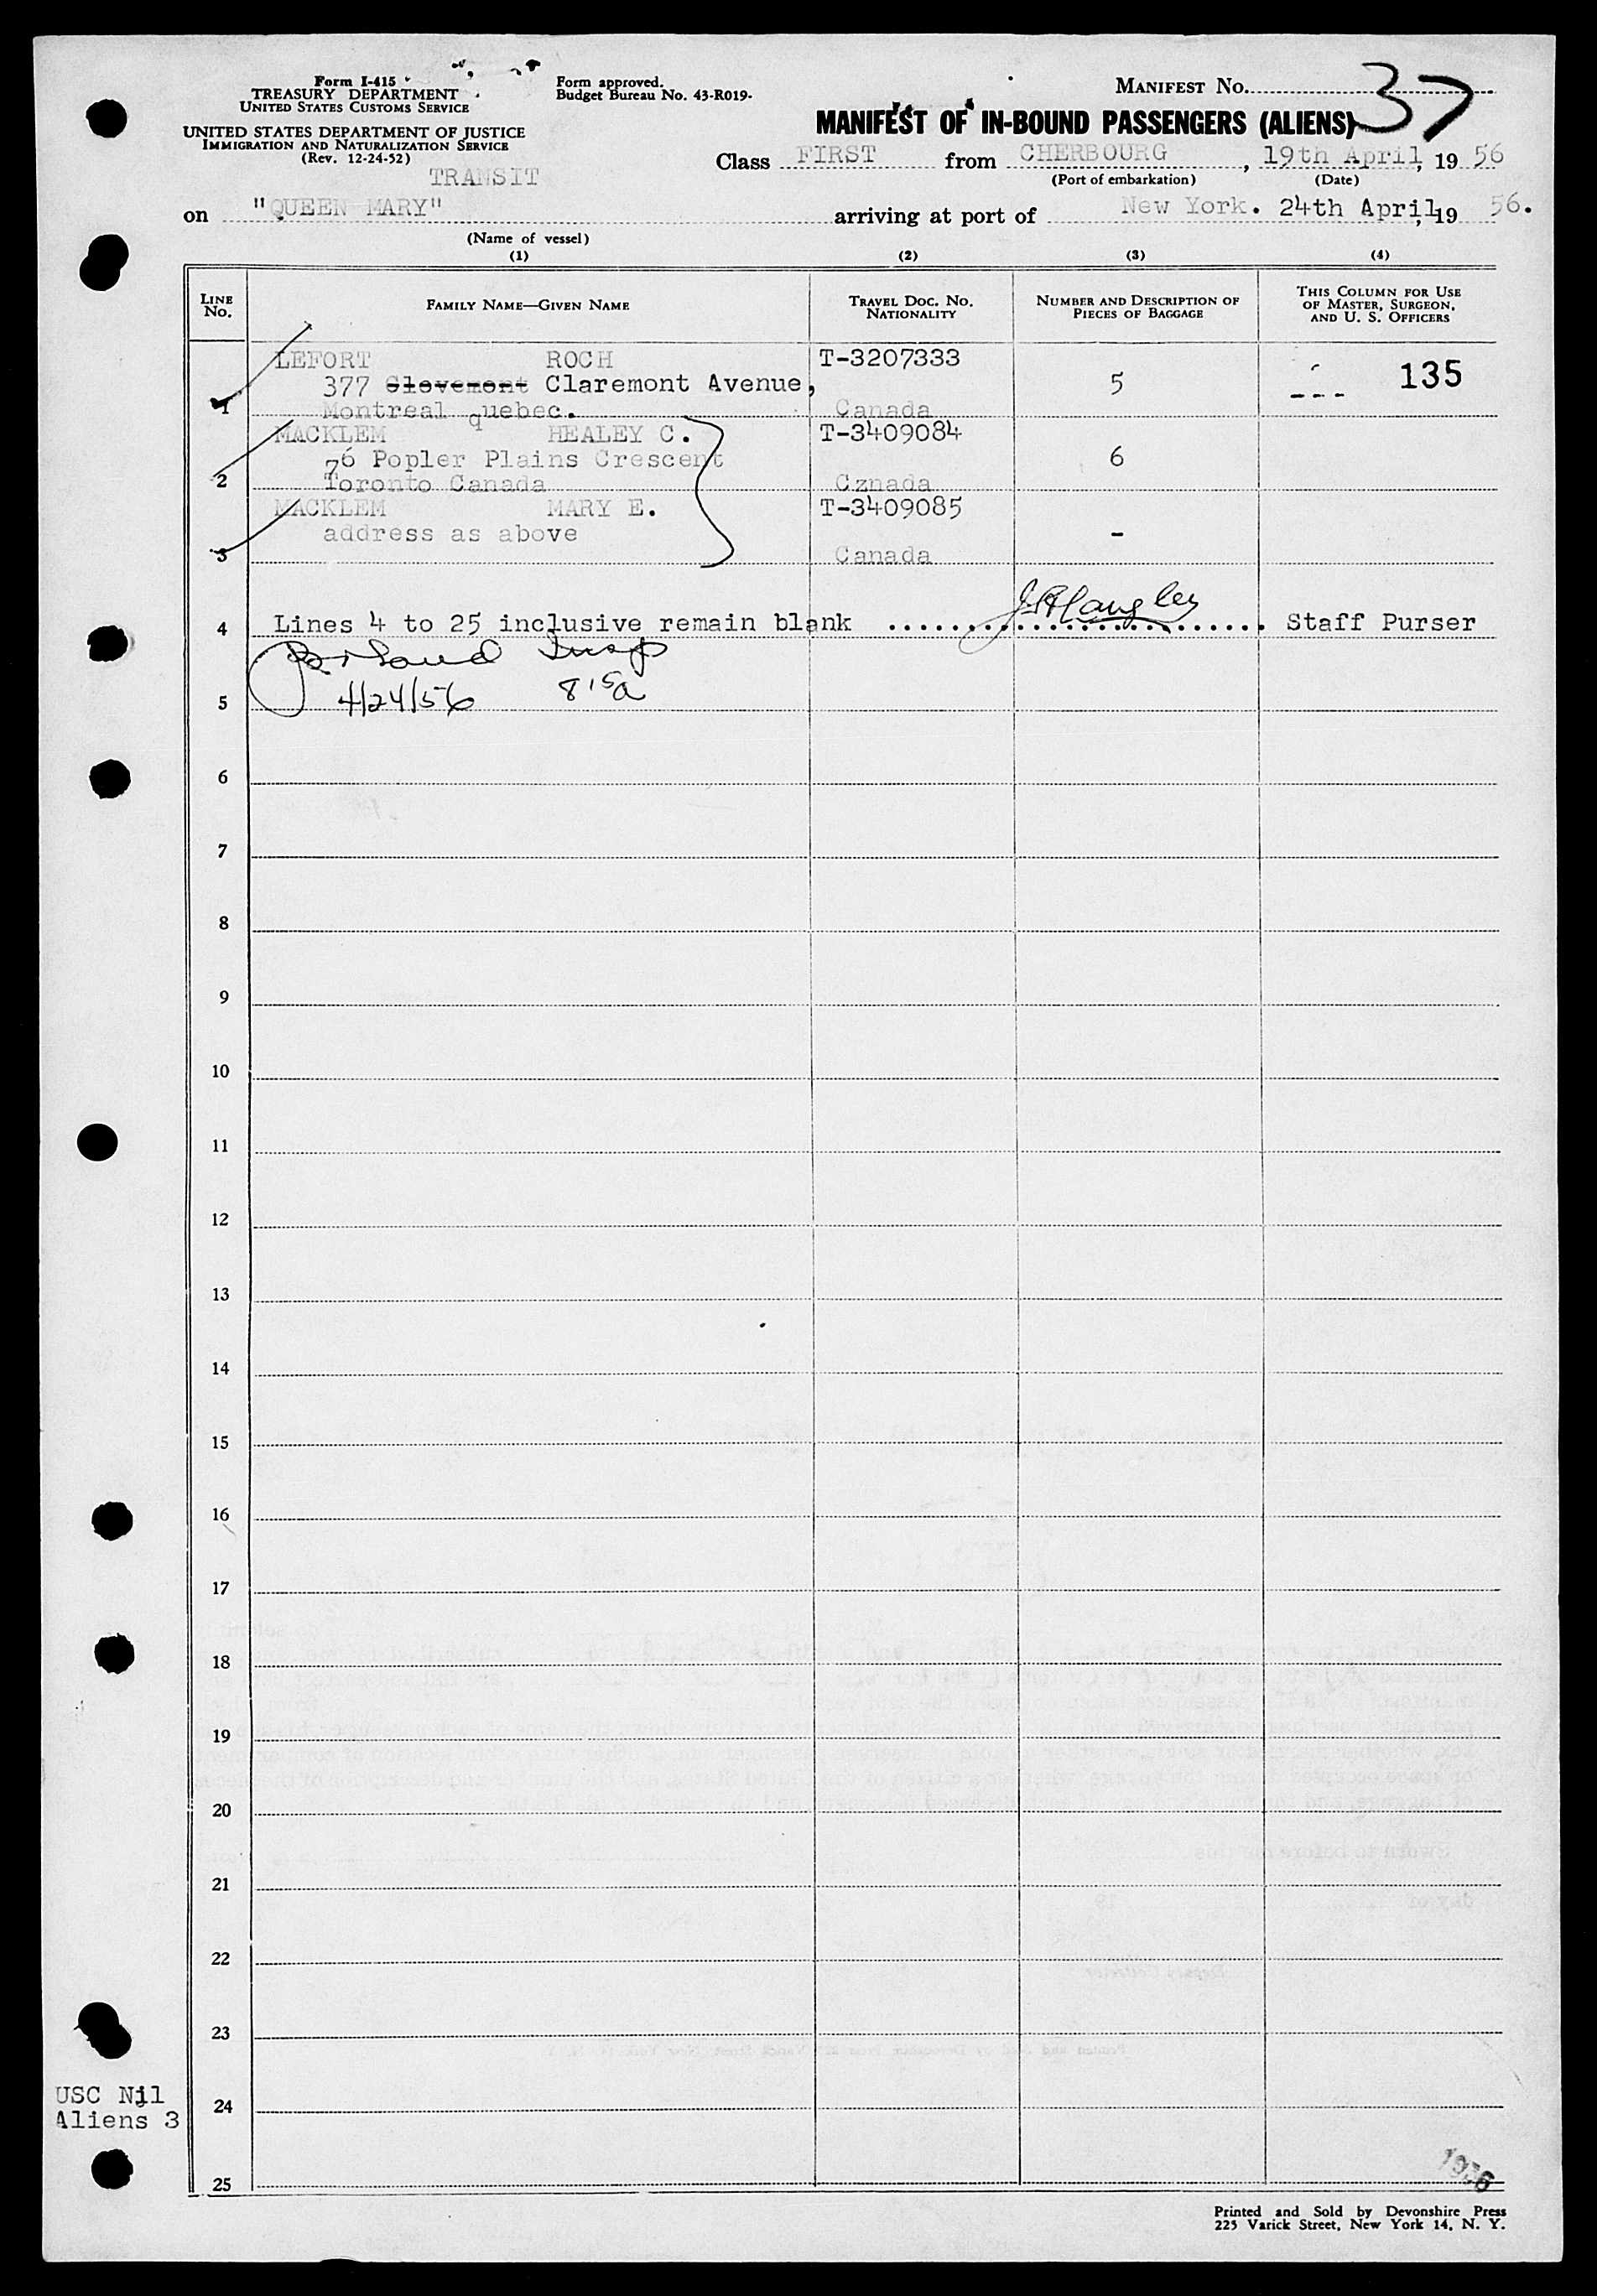 Form I-415
TREASURY DEPARTMENT
UNITED STATES CUSTOMS SERVICE
UNITED STATES DEPARTMENT OF JUSTICE
IMMIGRATION AND NATURALIZATION SERVICE
(Rev. 12-24-52)
Form approved.
Budget Bureau No. 43-R019-
MANIFEST No. 37
MANIFEST OF IN-BOUND PASSENGERS (ALIENS)
Class FIRST from CHERBOURG, 19th April, 19 56
(Port of embarkation) (Date)
TRANSIT
on "QUEEN MARY" arriving at port of New York. 24th April, 19 56.
(Name of vessel)
(1) (2) (3) (4)
LINE No. FAMILY NAME—GIVEN NAME TRAVEL DOC. NO. NATIONALITY NUMBER AND DESCRIPTION OF PIECES OF BAGGAGE THIS COLUMN FOR USE OF MASTER, SURGEON, AND U. S. OFFICERS
LEFORT ROCH T-3207333
377 Clevemont Claremont Avenue, 5 --- 135
1 Montreal quebec. Canada
MACKLEM HEALEY C. T-3409084
76 Popler Plains Crescent 6
2 Toronto Canada Cznada
MACKLEM MARY E. T-3409085
address as above -
3 Canada
4 Lines 4 to 25 inclusive remain blank Staff Purser
Insp
5 4/24/56 8 15a
6
7
8
9
10
11
12
13
14
15
16
17
18
19
20
21
22
23
USC Nil
Aliens 3
24
25
1956
Printed and Sold by Devonshire Press
225 Varick Street, New York 14, N. Y.